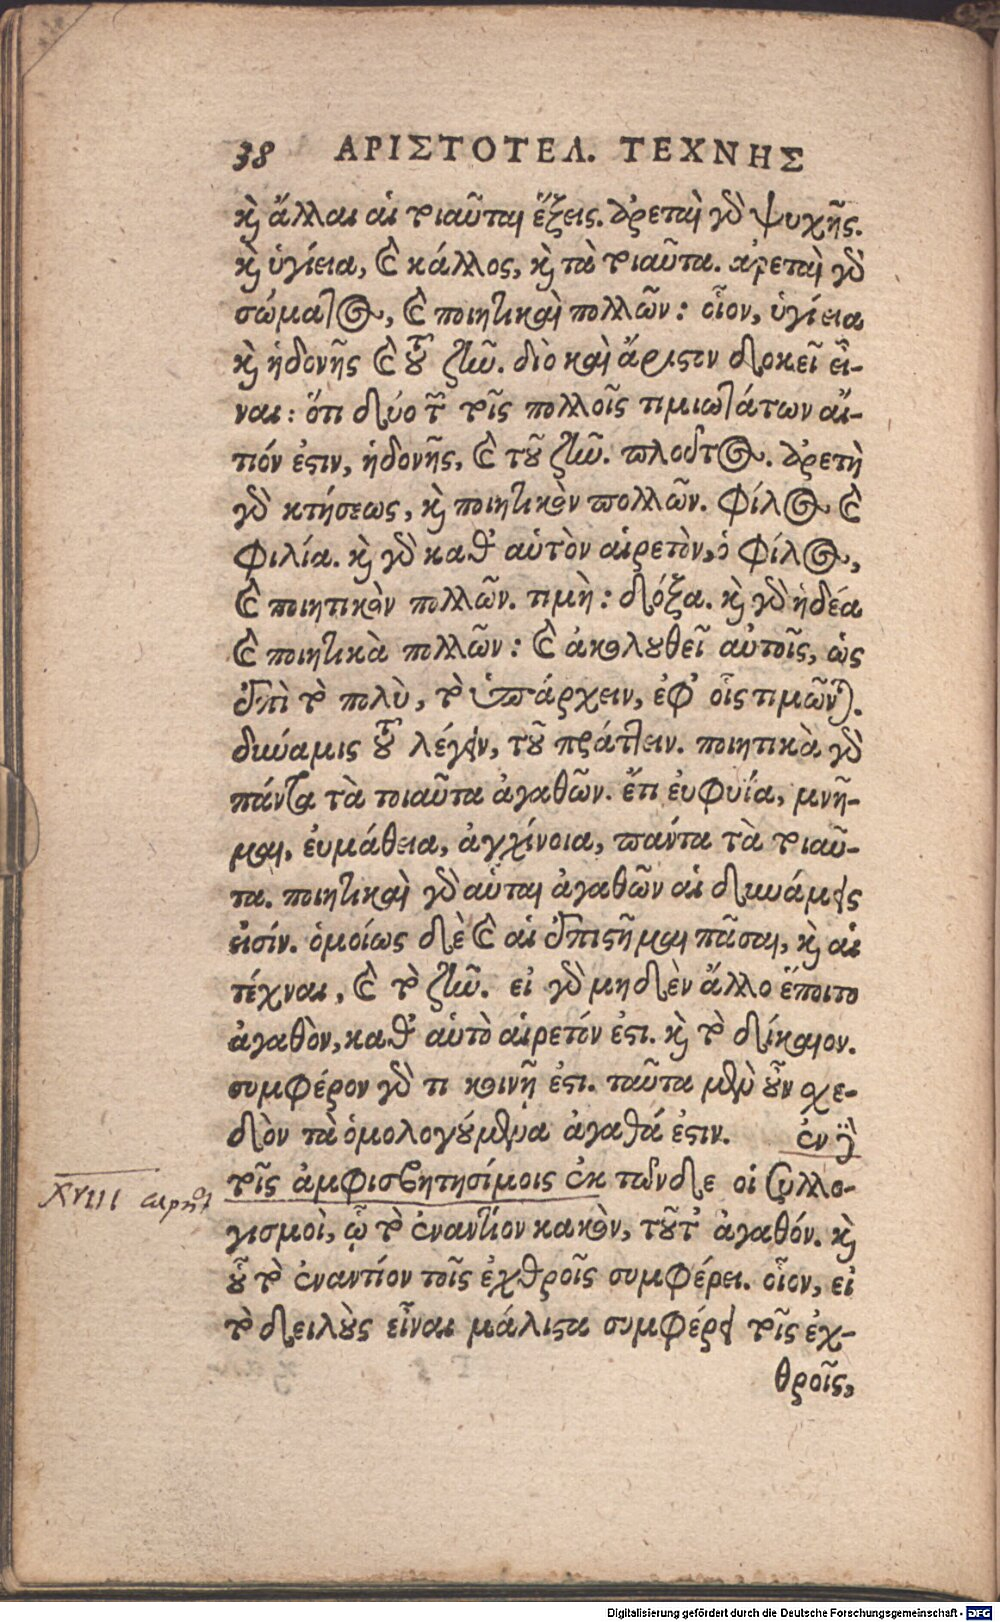 38 ΑΡΙΣΤΟΤΕΛ. ΤΕΧΝΗΣ
καὶ ἄλλαι αἱ τοιαῦται ἕξεις. ἀρεταὶ γὰρ ψυχῆς.
καὶ ὑγίεια, καὶ κάλλος, καὶ τὰ τοιαῦτα. ἀρεταὶ γὰρ
σώματος, καὶ ποιητικαὶ πολλῶν: οἷον, ὑγίεια
καὶ ἡδονῆς καὶ τοῦ ζῆν. διὸ καὶ ἄριστον δοκεῖ εἶ-
ναι: ὅτι δύο τῶν τοῖς πολλοῖς τιμιωτάτων αἴ-
τιόν ἐστιν, ἡδονῆς, καὶ τοῦ ζῆν. πλοῦτος. ἀρετὴ
γὰρ κτήσεως, καὶ ποιητικὸν πολλῶν. φίλος καὶ
φιλία. καὶ γὰρ καθ' αὑτὸν αἱρετὸν, ὁ φίλος,
καὶ ποιητικὸν πολλῶν. τιμὴ: δόξα. καὶ γὰρ ἡδέα
καὶ ποιητικὰ πολλῶν: καὶ ἀκολουθεῖ αὐτοῖς, ὡς
ἐπὶ τὸ πολὺ, τὸ ὑπάρχειν, ἐφ' οἷς τιμῶνται.
δύναμις τοῦ λέγειν, τοῦ πράττειν. ποιητικὰ γὰρ
πάντα τὰ τοιαῦτα ἀγαθῶν. ἔτι εὐφυΐα, μνῆ-
μαι, εὐμάθεια, ἀγχίνοια, πάντα τὰ τοιαῦ-
τα. ποιητικαὶ γὰρ αὗται ἀγαθῶν αἱ δυνάμεις
εἰσίν. ὁμοίως δὲ καὶ αἱ ἐπιστῆμαι πᾶσαι, καὶ αἱ
τέχναι, καὶ τὸ ζῆν. εἰ γὰρ μηδὲν ἄλλο ἕποιτο
ἀγαθὸν, καθ' αὑτὸ αἱρετόν ἐστι. καὶ τὸ δίκαιον.
συμφέρον γὰρ τι κοινῇ ἐστι. ταῦτα μὲν οὖν σχε-
δὸν τὰ ὁμολογούμενα ἀγαθά ἐστιν. ἐν δὲ
τοῖς ἀμφισβητησίμοις ἐκ τῶνδε οἱ συλλο-
XVIII
γισμοὶ, ᾧ τὸ ἐναντίον κακὸν, τοῦτ' ἀγαθόν. καὶ
οὗ τὸ ἐναντίον τοῖς ἐχθροῖς συμφέρει. οἷον, εἰ
τὸ δειλοὺς εἶναι μάλιστα συμφέρει τοῖς ἐχ-
θροῖς,
Digitalisierung gefördert durch die Deutsche Forschungsgemeinschaft - DFG